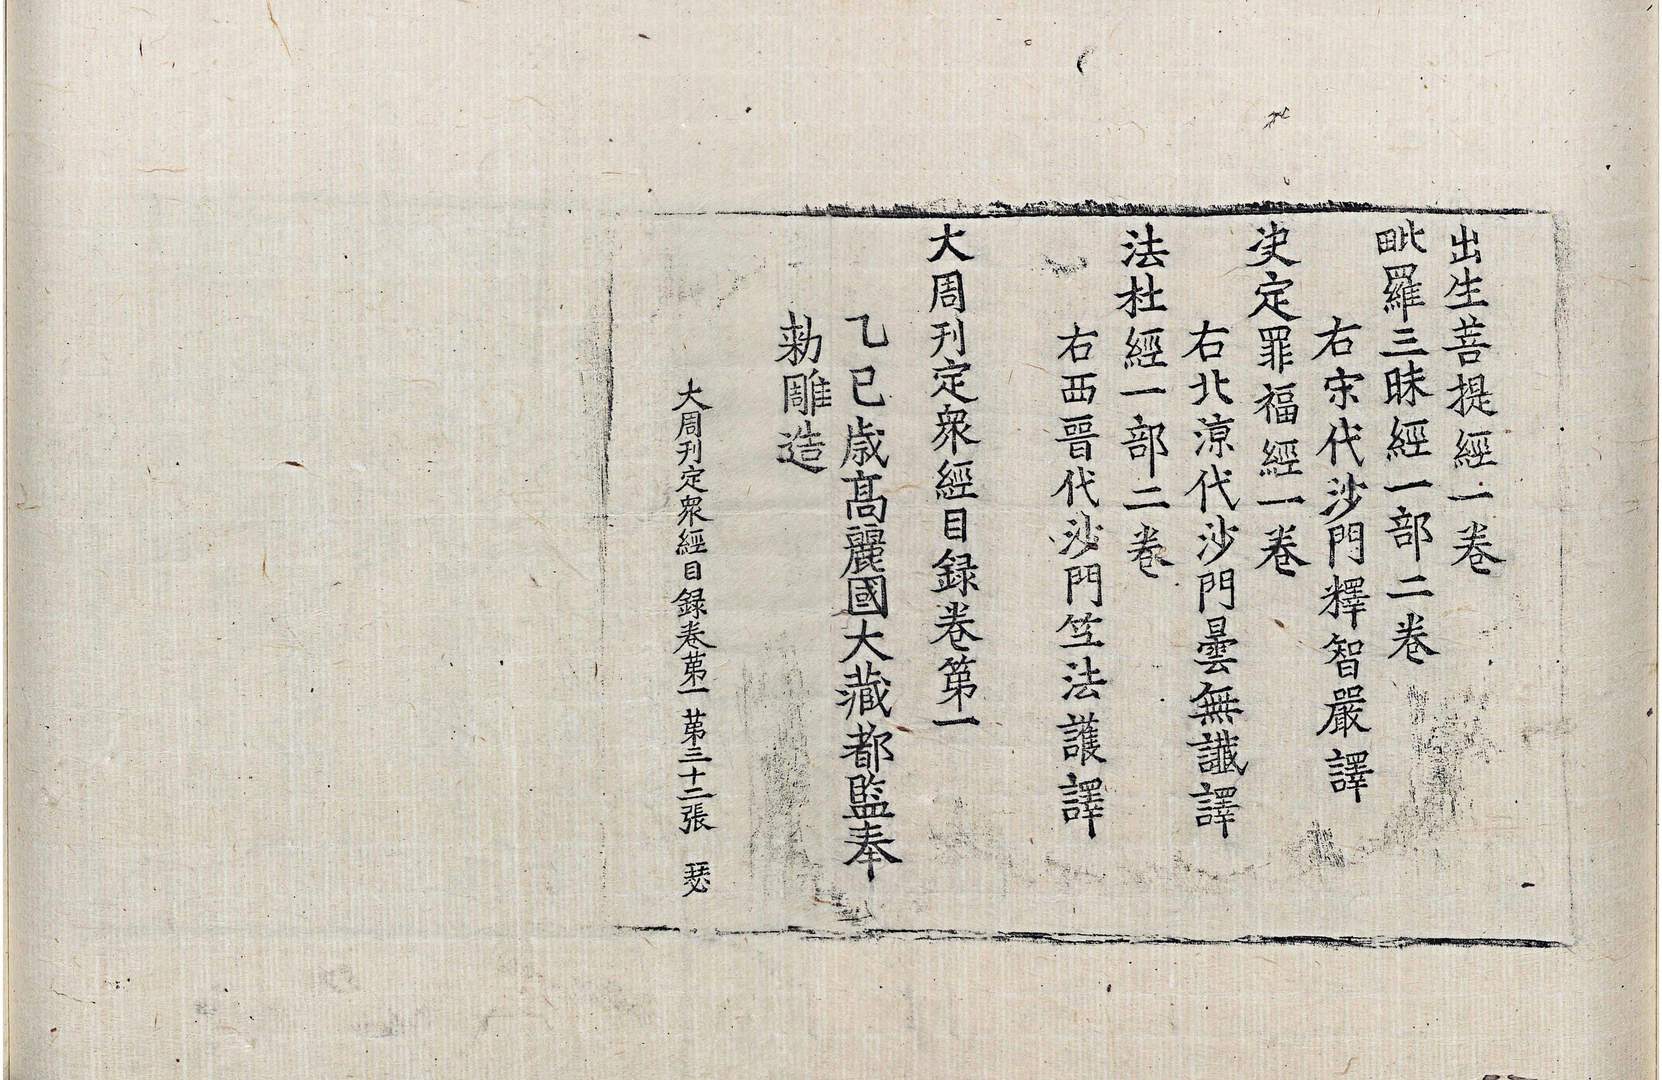 出生菩提經一卷
毗羅三昧經一部二卷
右宋代沙門釋智嚴譯
决定罪福經一卷
右北涼代沙門曇無讖譯
法杜經一部二卷
右西晉代沙門竺法護譯
大周刊定衆經目録卷第一
乙巳歳髙麗國大藏都監奉
勑雕造
大周刊定衆經目録卷苐一 苐三十二張 瑟